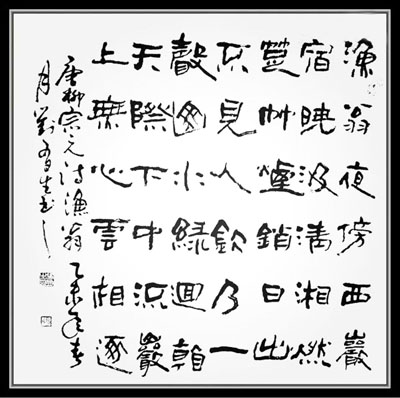 漁翁夜傍西巖
宿曉汲清湘燃
楚竹煙銷日出
不見人欸乃一
聲山水綠迴看
天際下中流巖
上無心雲相逐
唐柳宗元诗漁翁乙未年春
月劉生书